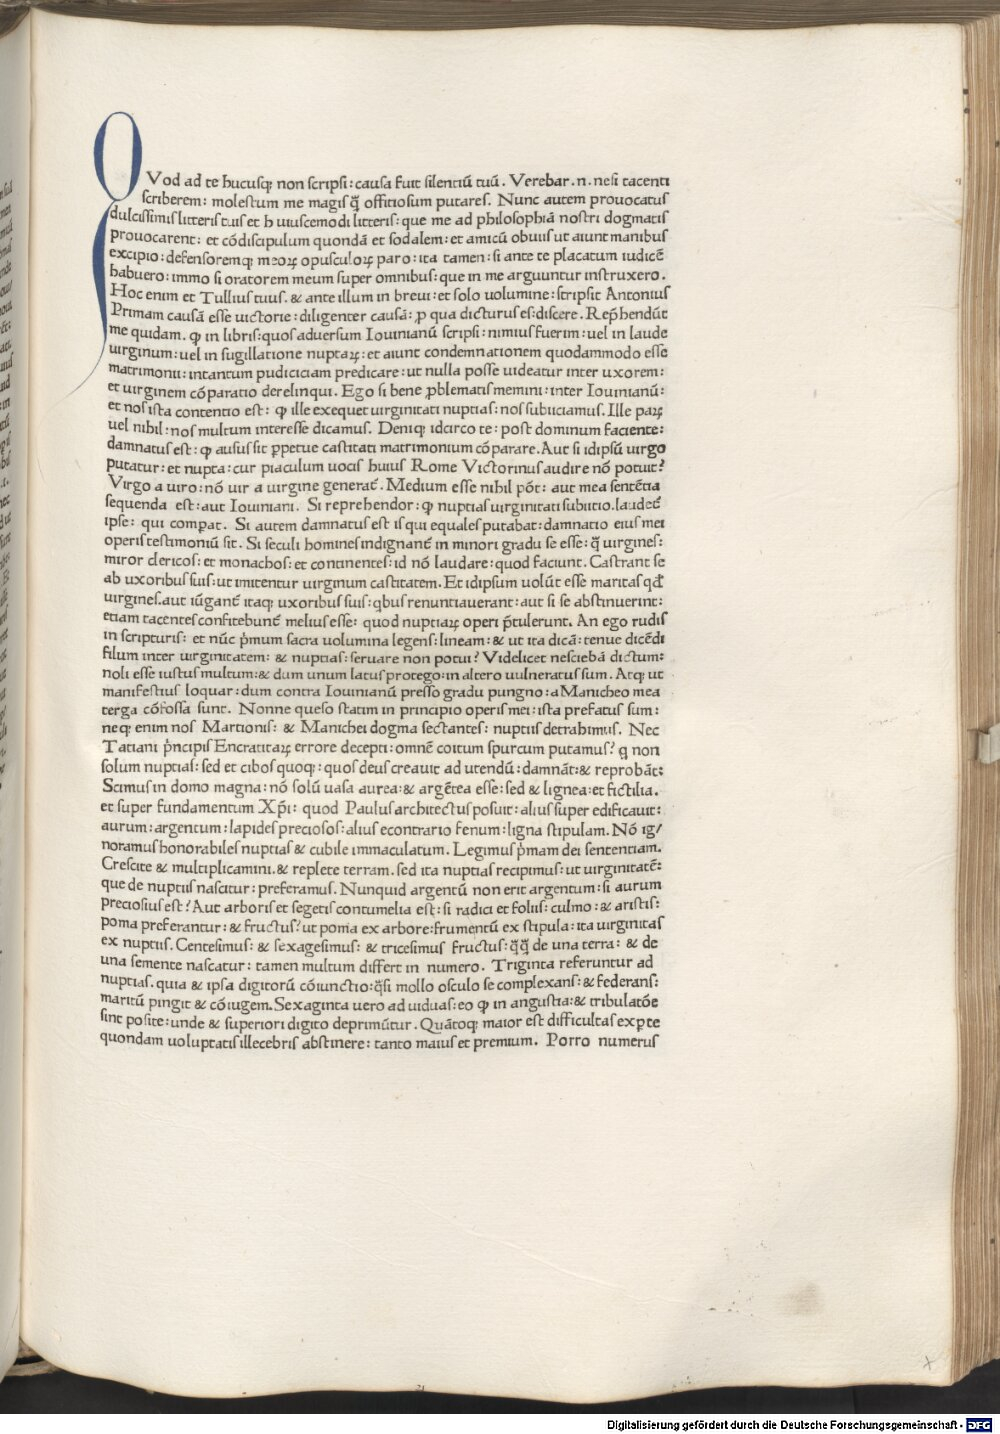 QVod ad te hucusq; non scripsi: causa fuit silentiū tuū. Verebar .n. nesi tacenti
scriberem: molestum me magis q̄ offitiosum putares. Nunc autem prouocatus
dulcissimis litteris tuis et huiuscemodi litteris: que me ad philosophiā nostri dogmatis
prouocarent: et cōdiscipulum quondā et sodalem: et amicū obuiis ut aiunt manibus
excipio: defensoremq; meoꝝ opusculoꝝ paro: ita tamen: si ante te placatum iudicē
habuero: immo si oratorem meum super omnibus: que in me arguuntur instruxero.
Hoc enim et Tullius tuus. & ante illum in breui: et solo uolumine: scripsit Antonius
Primam causā esse uictorie: diligenter causā: ꝓ qua dicturus es: discere. Rep̄hendūt
me quidam. ꝙ in libris: quos aduersum Iouinianū scripsi: nimius fuerim: uel in laude
uirginum: uel in sugillatione nuptaꝝ: et aiunt condemnationem quodammodo esse
matrimonii: intantum pudiciciam predicare: ut nulla posse uideatur inter uxorem:
et uirginem cōparatio derelinqui. Ego si bene ꝓblematis memini: inter Iouinianū:
et nos ista contentio est: ꝙ ille exequet uirginitati nuptias: nos subiiciamus. Ille paꝝ
uel nihil: nos multum interesse dicamus. Deniq; idcirco te: post dominum faciente:
damnatus est: ꝙ ausus sit ꝑpetue castitati matrimonium cōparare. Aut si idipsū uirgo
putatur: et nupta: cur piaculum uocis huius Rome Victorinus audire nō potuit?
Virgo a uiro: nō uir a uirgine generat̄. Medium esse nihil pōt: aut mea sentētia
sequenda est: aut Iouiniani. Si reprehendor: ꝙ nuptias uirginitati subiitio. laudet̄
ipse: qui comparat. Si autem damnatus est is qui equales putabat: damnatio eius mei
operis testimoniū sit. Si seculi homines indignant̄ in minori gradu se esse: q̄ uirgines:
miror clericos: et monachos: et continentes: id nō laudare: quod faciunt. Castrant se
ab uxoribus suis: ut imitentur uirginum castitatem. Et idipsum uolūt esse maritas qd̄
uirgines. aut iūgant̄ itaq; uxoribus suis: qbus renuntiauerant: aut si se abstinuerint:
etiam tacentes confitebunt̄ melius esse: quod nuptiaꝝ operi p̄tulerunt. An ego rudis
in scripturis: et nūc p̄mum sacra uolumina legens: lineam: & ut ita dicā: tenue dicēdi
filum inter uirginitatem: & nuptias: seruare non potui? Videlicet nesciebā dictum:
noli esse iustus multum: & dum unum latus protego: in altero uulneratus sum. Atq; ut
manifestius loquar: dum contra Iouinianū presso gradu pungno: a Manicheo mea
terga cōfossa sunt. Nonne queso statim in principio operis mei: ista prefatus sum:
neq; enim nos Martionis: & Manichei dogma sectantes: nuptiis detrahimus. Nec
Tatiani p̄ncipis Encratitaꝝ errore decepti: omnē coitum spurcum putamus? q non
solum nuptias: sed et cibos quoq;: quos deus creauit ad utendū: damnāt: & reprobāt:
Scimus in domo magna: nō solū uasa aurea: & argētea esse: sed & lignea: et fictilia.
et super fundamentum Xp̄i: quod Paulus architectus posuit: alius super edificauit:
aurum: argentum: lapides preciosos: alius econtrario fenum: ligna stipulam. Nō ig/
noramus honorabiles nuptias & cubile immaculatum. Legimus p̄mam dei sententiam.
Crescite & multiplicamini. & replete terram. sed ita nuptias recipimus: ut uirginitatē:
que de nuptiis nascitur: preferamus. Nunquid argentū non erit argentum: si aurum
preciosius est? Aut arboris et segetis contumelia est: si radici et foliis: culmo: & aristis:
poma preferantur: & fructus? ut poma ex arbore: frumentū ex stipula: ita uirginitas
ex nuptiis. Centesimus: & sexagesimus: & tricesimus fructus: q̄q̄ de una terra: & de
una semente nascatur: tamen multum differt in numero. Triginta referuntur ad
nuptias. quia & ipsa digitorū cōiunctio: q̄si mollo osculo se complexans: & federans:
maritū pingit & cōiugem. Sexaginta uero ad uiduas: eo ꝙ in angustia: & tribulatōe
sint posite: unde & superiori digito deprimūtur. Quātoq; maior est difficultas exꝑte
quondam uoluptatis illecebris abstinere: tanto maius et premium. Porro numerus
Digitalisierung gefördert durch die Deutsche Forschungsgemeinschaft - DFG